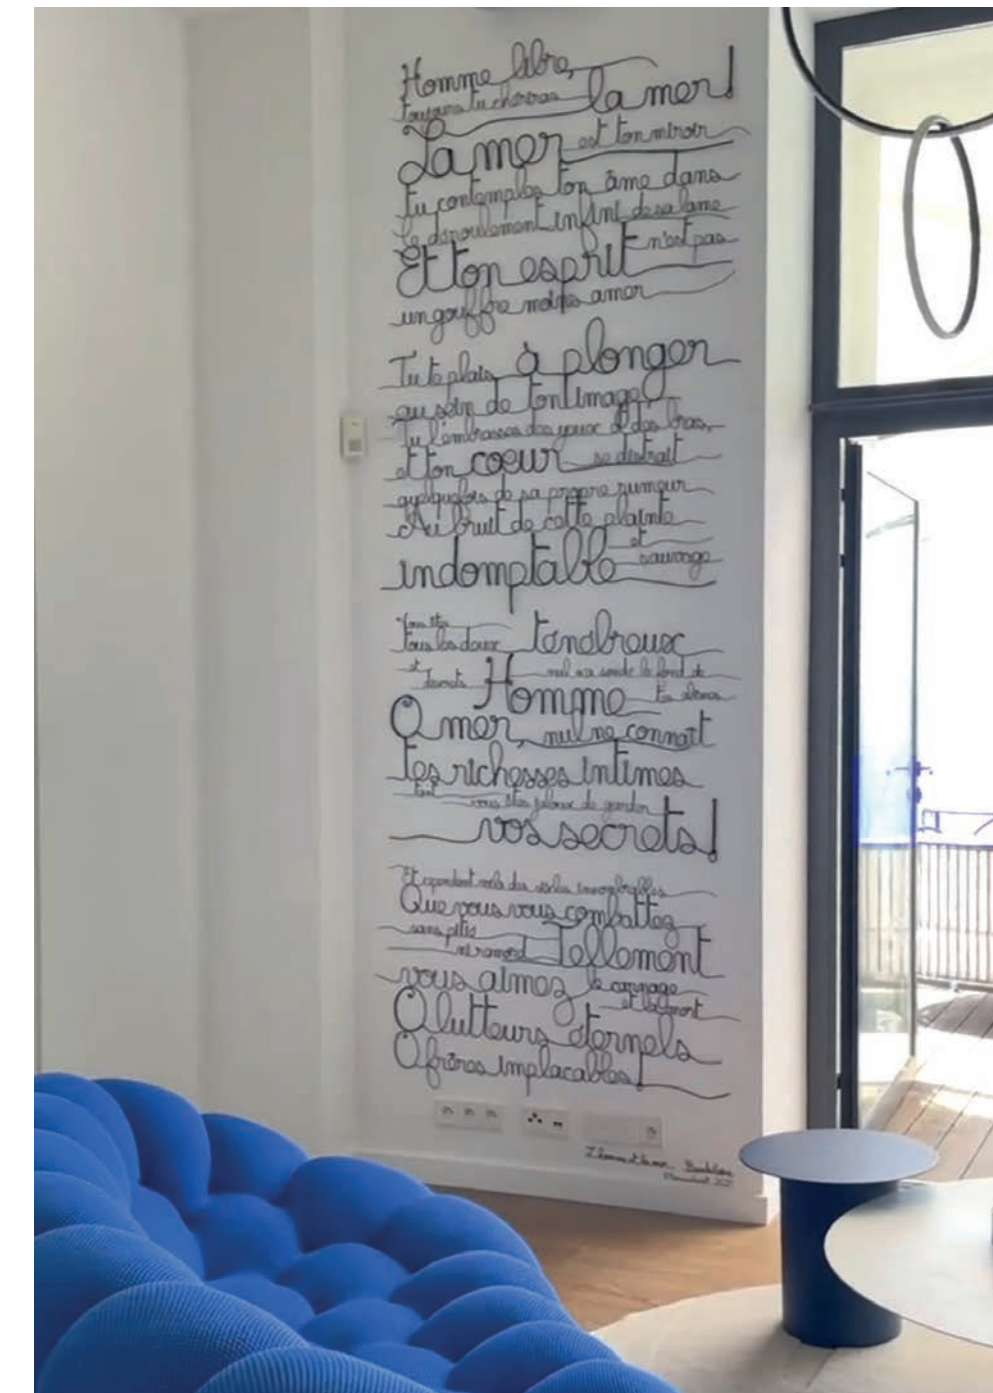 Homme libre,
toujours tu chériras la mer!
La mer est ton miroir
tu contemples ton âme dans
le déroulement infini de sa lame
Et ton esprit n'est pas
un gouffre moins amer
Tu te plais à plonger
au sein de ton image
Tu l'embrasses des yeux et des bras,
et ton cœur se distrait
quelquefois de sa propre rumeur
Au bruit de cette plainte
indomptable et sauvage
Vous êtes
tous les deux ténébreux
et discrets Homme nul n'a sondé le fond de
tes abîmes
O mer, nul ne connaît
tes richesses intimes
tant vous êtes jaloux de garder
vos secrets!
Et cependant voilà des siècles innombrables
Que vous vous combattez
sans pitié
ni remord Tellement
vous aimez le carnage
et la mort
O lutteurs éternels
O frères implacables!
L'homme et la mer, Baudelaire